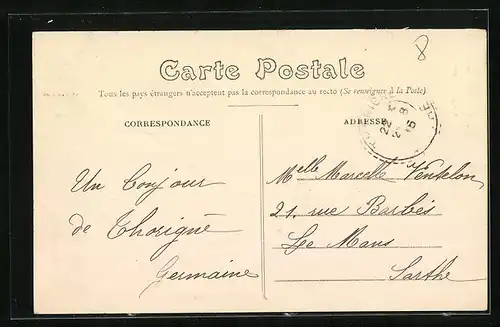 8
Carte Postale
Tous les pays étrangers n'acceptent pas la correspondance au recto (Se renseigner à la Poste)
CORRESPONDANCE
ADRESSE
Un Bonjour
de Thorigné
Germaine
Melle Marcelle Ventelon
21. rue Barbès
Le Mans
Sarthe